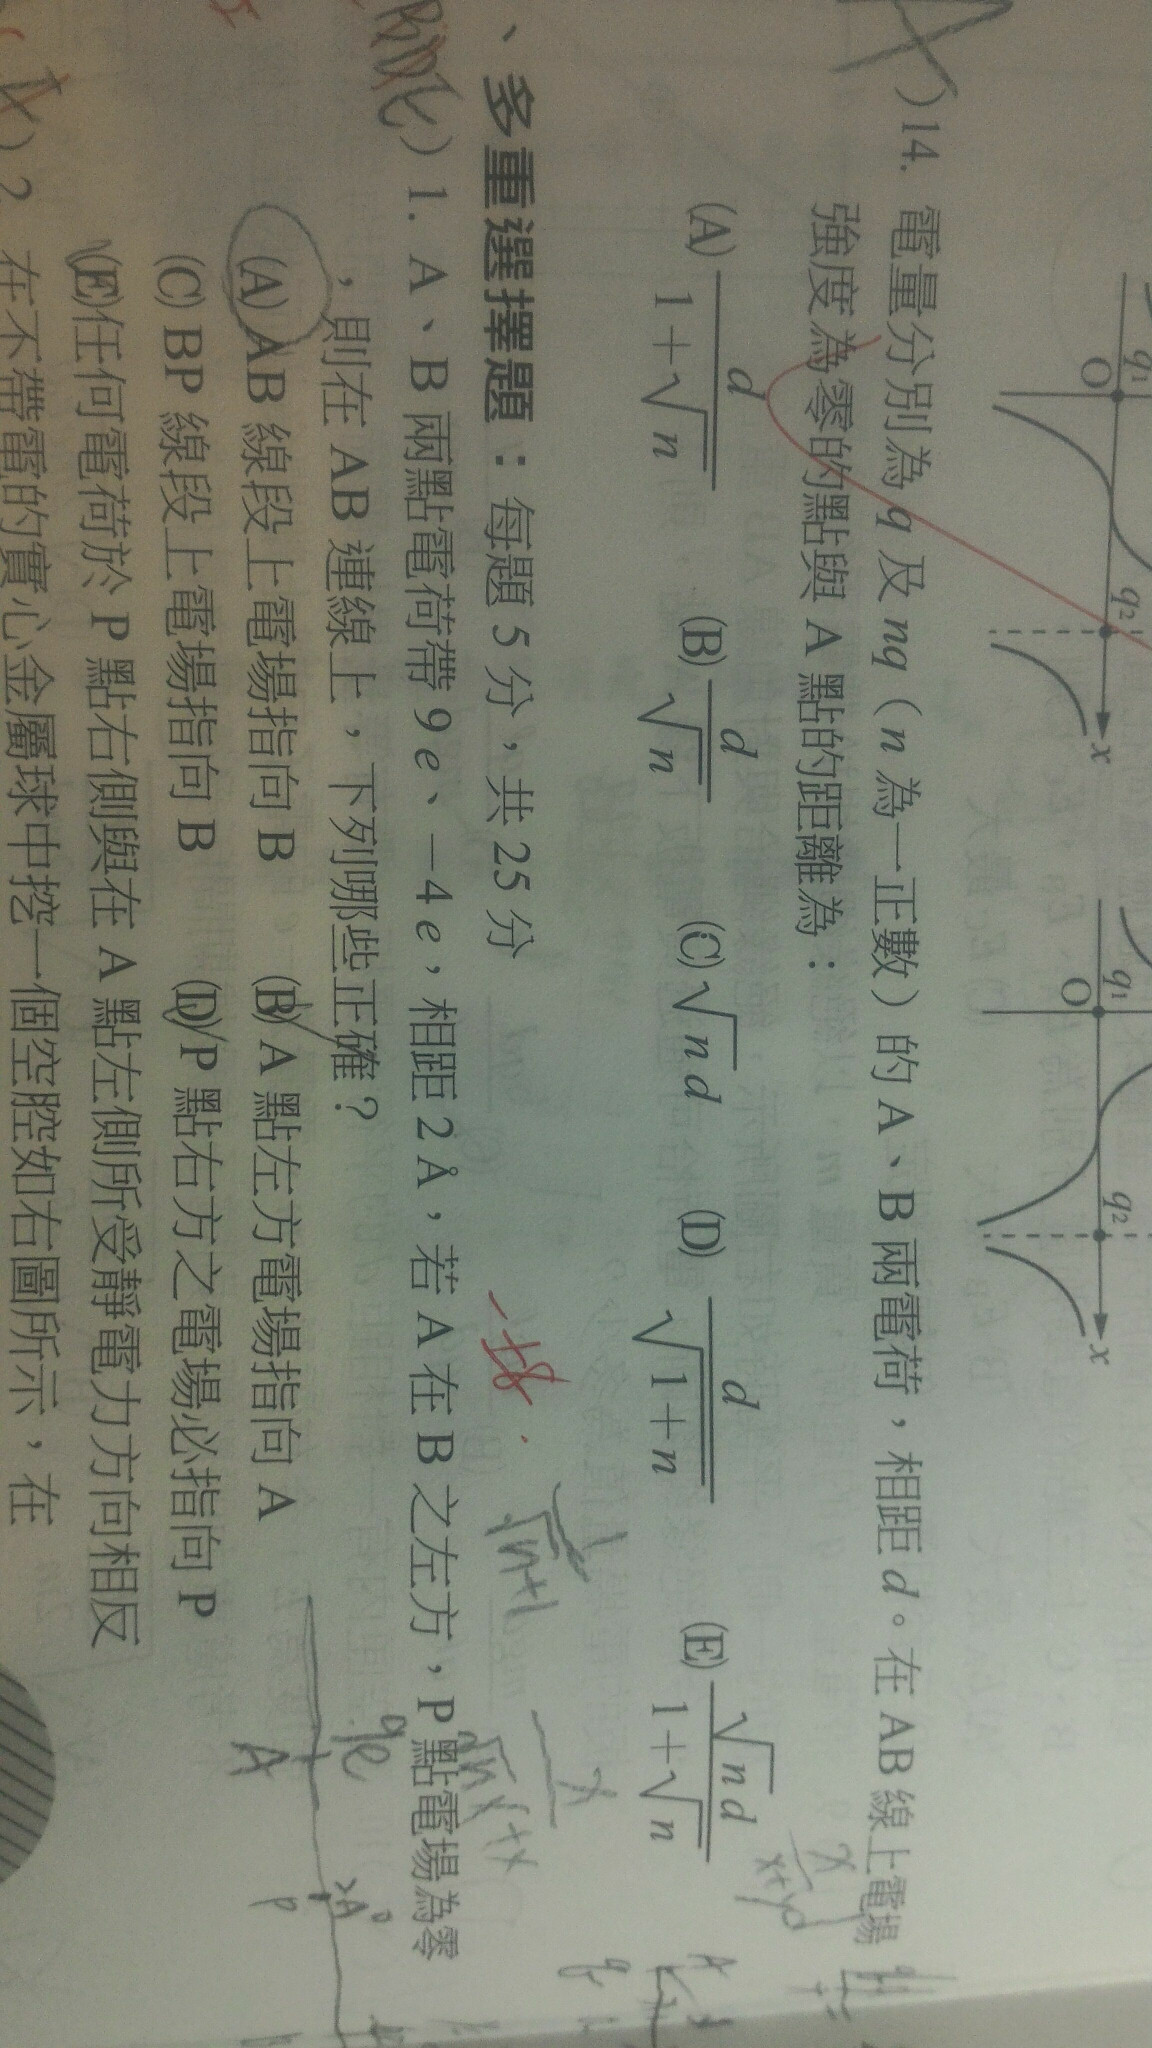 q₁ q₂
O x
q₁ q₂
O x
)14. 電量分別為 q 及 nq(n 為一正數)的 A、B 兩電荷,相距 d。在 AB 線上電場
強度為零的點與 A 點的距離為:
(A) d/(1+√n) (B) d/√n (C) √n d (D) d/√(1+n) (E) √n d/(1+√n)
、多重選擇題:每題 5 分,共 25 分
)1. A、B 兩點電荷帶 9e、−4e,相距 2 Å,若 A 在 B 之左方,P 點電場為零
,則在 AB 連線上,下列哪些正確?
(A) AB 線段上電場指向 B (B) A 點左方電場指向 A
(C) BP 線段上電場指向 B (D) P 點右方之電場必指向 P
(E)任何電荷於 P 點右側與在 A 點左側所受靜電力方向相反
)2. 在不帶電的實心金屬球中挖一個空腔如右圖所示,在
-18.
√n+1
x
√n x+x
9e
A
2Å
P
x
x+yd